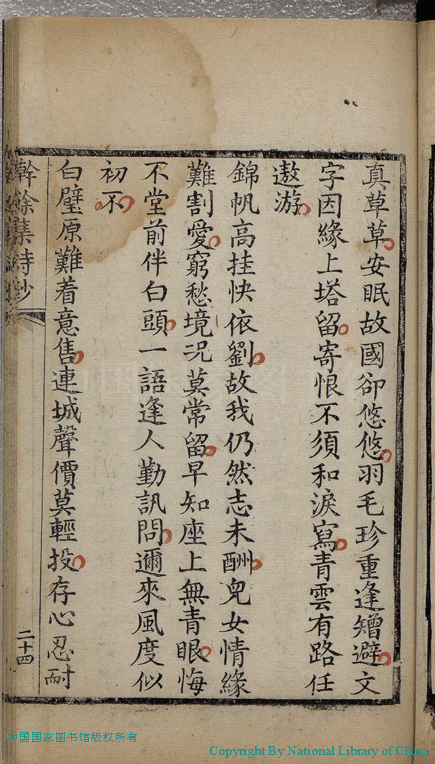 真草草安眠故國卻悠悠羽毛珍重逢矰避文
字因緣上塔留寄恨不須和淚寫青雲有路任
遨游
錦帆高挂快依劉故我仍然志未酬兒女情緣
難割愛窮愁境況莫常留早知座上無青眼悔
不堂前伴白頭一語逢人勤訊問邇來風度似
初不
白璧原難着意售連城聲價莫輕投存心忍耐
餘集詩鈔
二十四
中国国家图书馆版权所有
Copyright By National Library of China